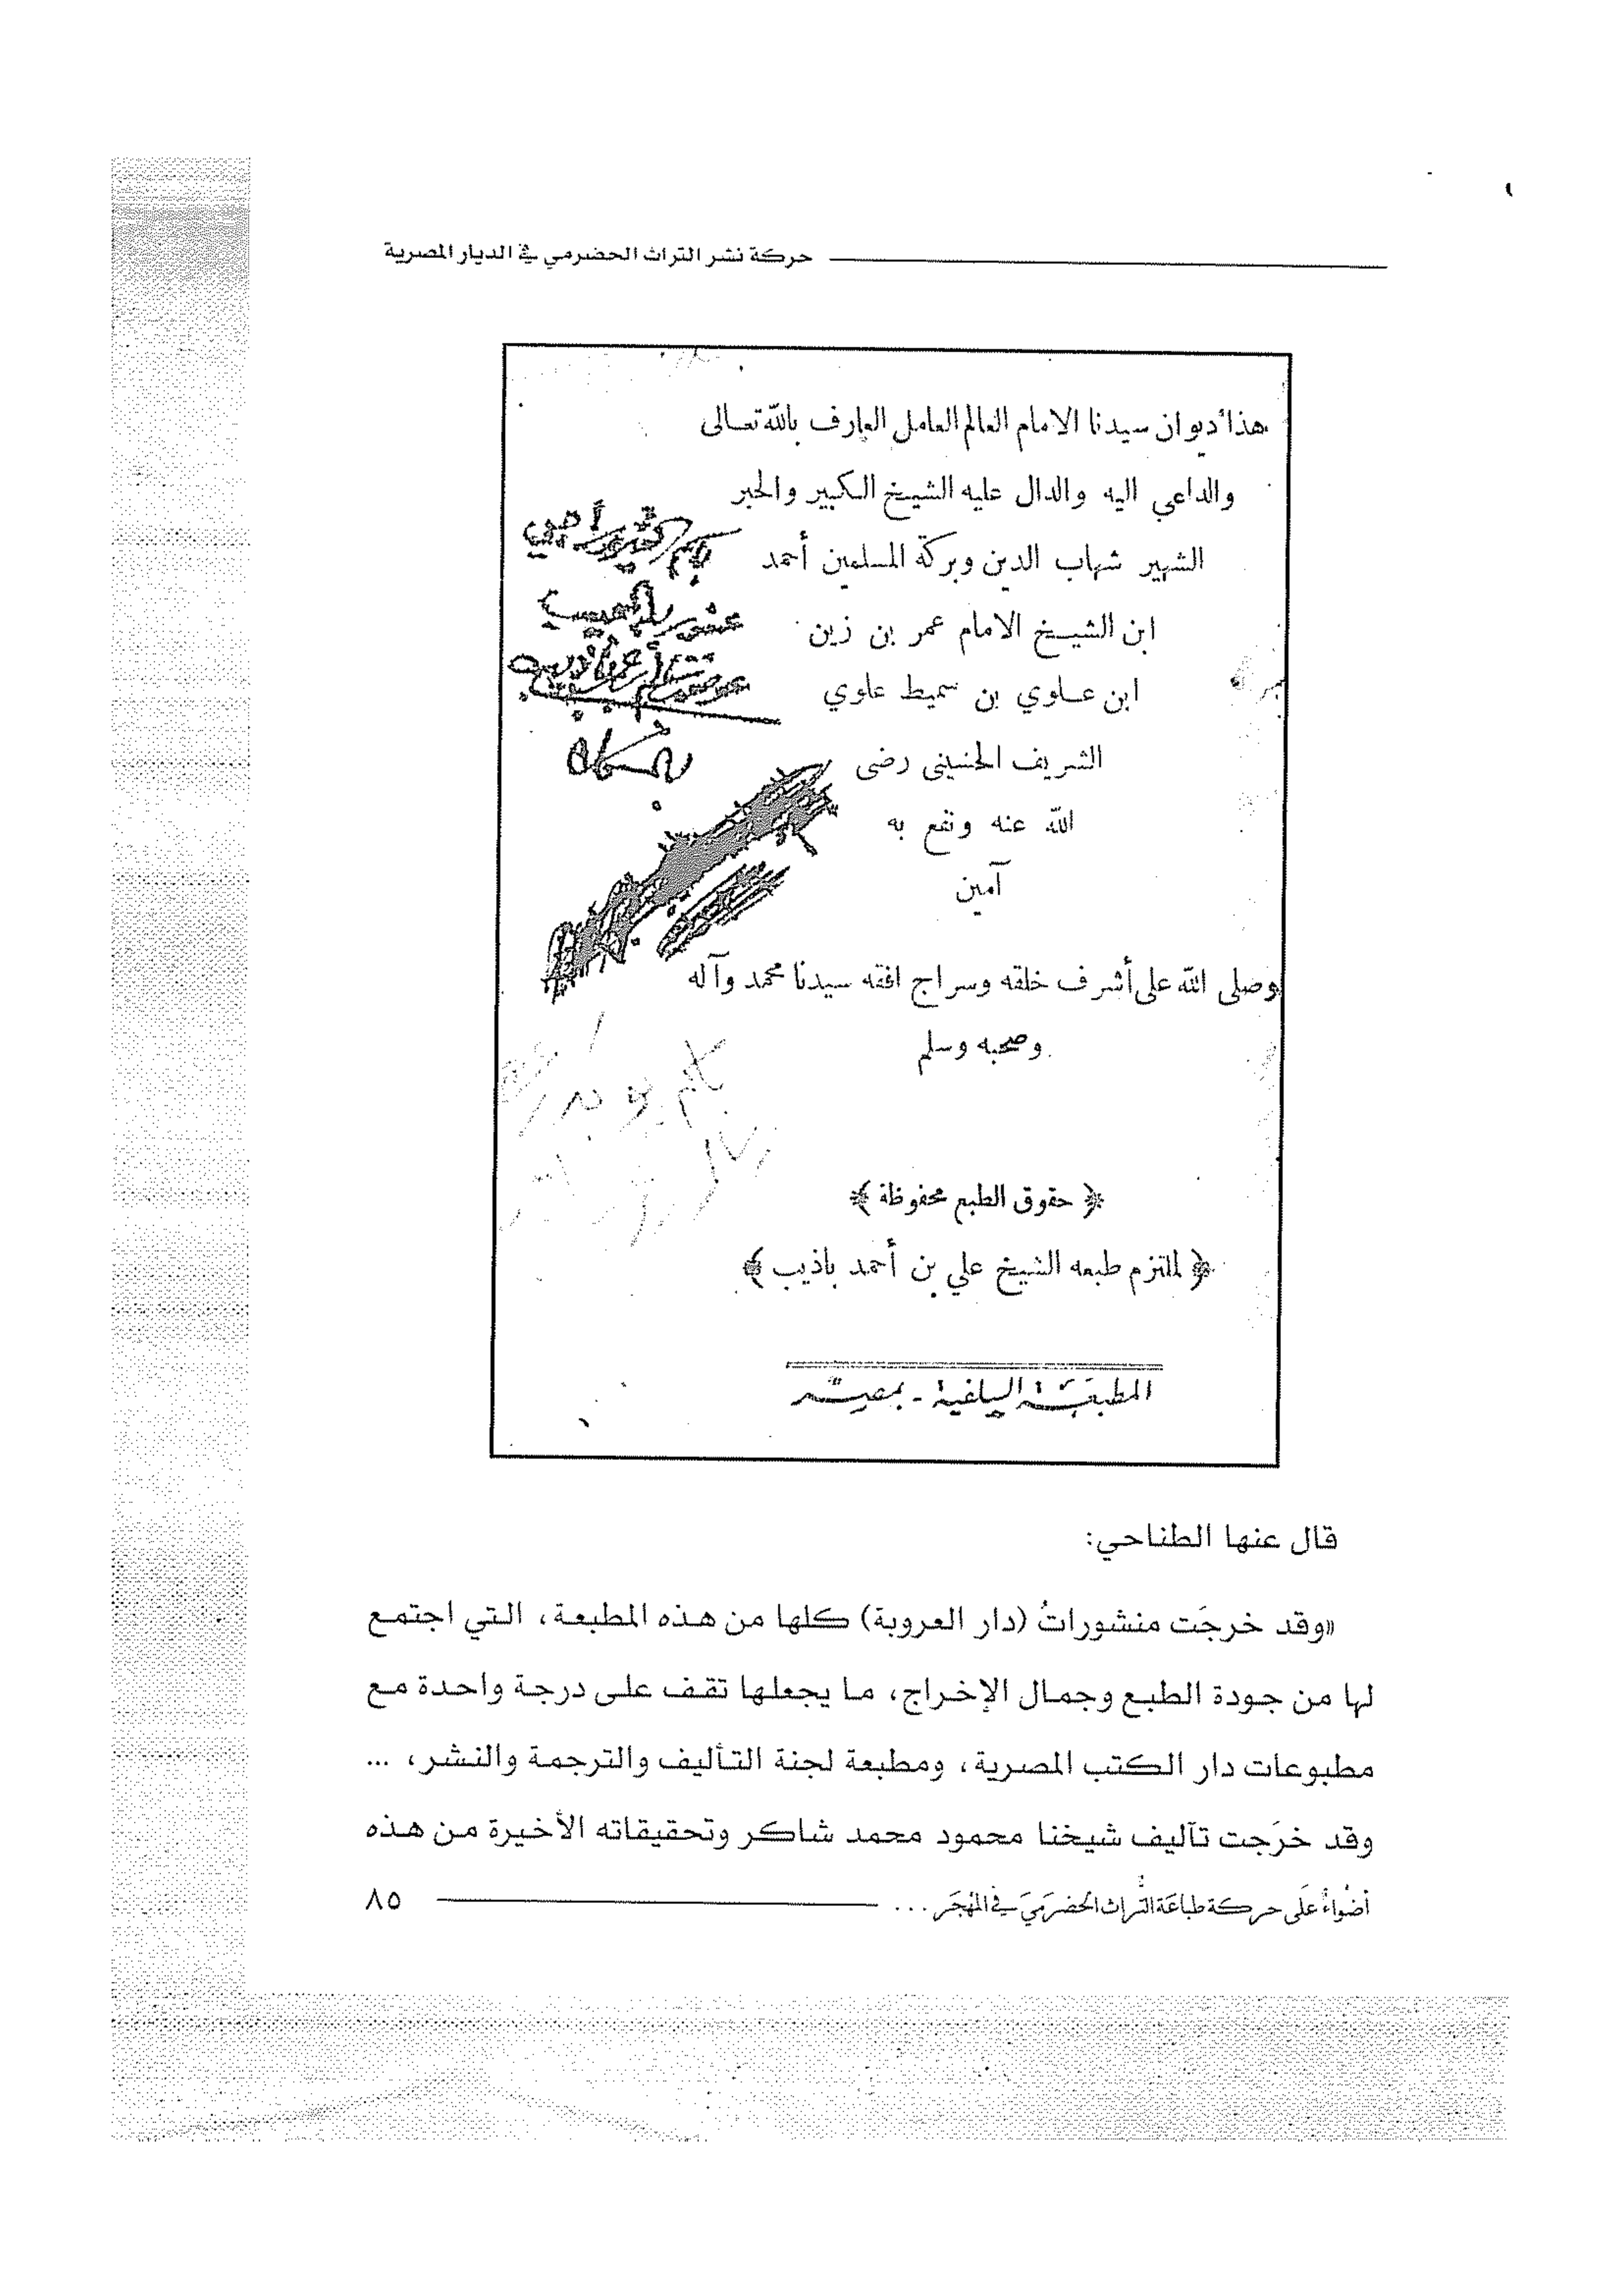 حركة نشر التراث الحضرمي في الديار المصرية
هذا ديوان سيدنا الامام العالم العامل العارف بالله تعالى
والداعي اليه والدال عليه الشيخ الكبير والحبر
الشهير شهاب الدين وبركة المسلمين أحمد
ابن الشيخ الامام عمر بن زين
ابن علوي بن سميط علوي
الشريف الحسيني رضى
الله عنه ونفع به
آمين
وصلى الله على أشرف خلقه وسراج افقه سيدنا محمد وآله
وصحبه وسلم
﴿ حقوق الطبع محفوظة ﴾
﴿ الملتزم طبعه الشيخ علي بن أحمد باذيب ﴾
المطبعة السلفية - بمصر
قال عنها الطناحي:
«وقد خرجَت منشوراتُ (دار العروبة) كلها من هذه المطبعة، التي اجتمع
لها من جودة الطبع وجمال الإخراج، ما يجعلها تقف على درجة واحدة مع
مطبوعات دار الكتب المصرية، ومطبعة لجنة التأليف والترجمة والنشر، ...
وقد خرَجت تآليف شيخنا محمود محمد شاكر وتحقيقاته الأخيرة من هذه
أضواءٌ عَلَى حركة طباعَة التُّراث الحضرَميّ في المَهْجَر ... ٨٥